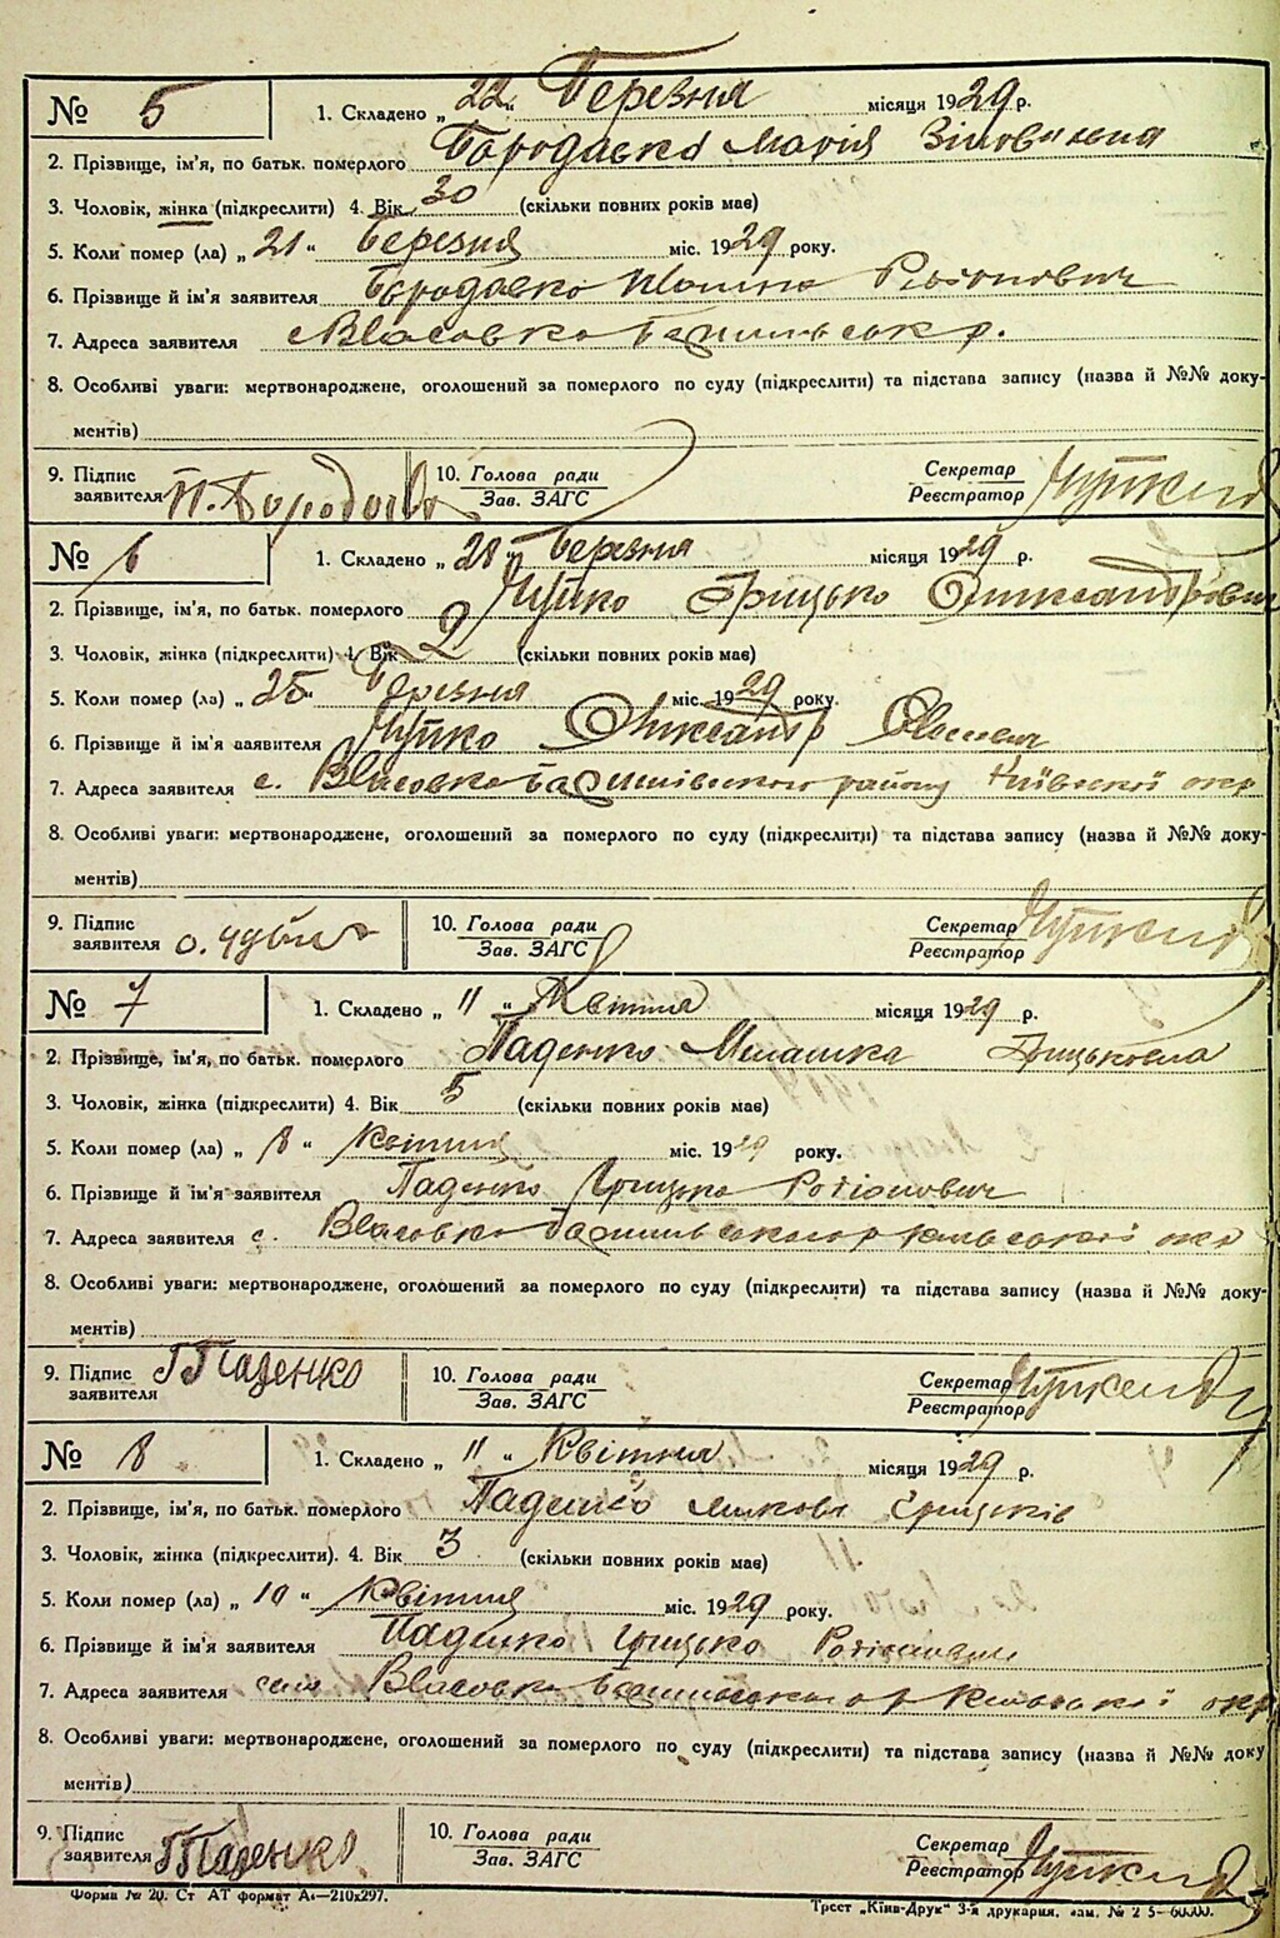 № 5 1. Складено „ 22 “ Березня місяця 1929 р.
2. Прізвище, ім'я, по батьк. померлого Бородавко Марія Зіновіївна
3. Чоловік, жінка (підкреслити) 4. Вік 30 (скільки повних років має)
5. Коли помер (ла) „ 21 “ Березня міс. 1929 року.
6. Прізвище й ім'я заявителя Бородавко
7. Адреса заявителя с Власовка
8. Особливі уваги: мертвонароджене, оголошений за померлого по суду (підкреслити) та підстава запису (назва й №№ доку-
ментів)
9. Підпис заявителя 10. Голова ради Зав. ЗАГС Секретар Реєстратор
№ 6 1. Складено „ 28 “ Березня місяця 1929 р.
2. Прізвище, ім'я, по батьк. померлого Грицько Олександрович
3. Чоловік, жінка (підкреслити) 4. Вік 2 (скільки повних років має)
5. Коли помер (ла) „ 25 “ Березня міс. 1929 року.
6. Прізвище й ім'я заявителя Олександр
7. Адреса заявителя с. Власовка району Київської окр
8. Особливі уваги: мертвонароджене, оголошений за померлого по суду (підкреслити) та підстава запису (назва й №№ доку-
ментів)
9. Підпис заявителя 10. Голова ради Зав. ЗАГС Секретар Реєстратор
№ 7 1. Складено „ 11 “ Квітня місяця 1929 р.
2. Прізвище, ім'я, по батьк. померлого Паденко Мелашка Грицьковна
3. Чоловік, жінка (підкреслити) 4. Вік 5 (скільки повних років має)
5. Коли помер (ла) „ 8 “ Квітня міс. 1929 року.
6. Прізвище й ім'я заявителя Паденко Грицько Родіонович
7. Адреса заявителя с. Власовка окр
8. Особливі уваги: мертвонароджене, оголошений за померлого по суду (підкреслити) та підстава запису (назва й №№ доку-
ментів)
9. Підпис заявителя Г Паденко 10. Голова ради Зав. ЗАГС Секретар Реєстратор
№ 8 1. Складено „ 11 “ Квітня місяця 1929 р.
2. Прізвище, ім'я, по батьк. померлого Паденко
3. Чоловік, жінка (підкреслити). 4. Вік 3 (скільки повних років має)
5. Коли помер (ла) „ 10 “ Квітня міс. 1929 року.
6. Прізвище й ім'я заявителя Паденко Грицько
7. Адреса заявителя село Власовка окр
8. Особливі уваги: мертвонароджене, оголошений за померлого по суду (підкреслити) та підстава запису (назва й №№ доку
ментів)
9. Підпис заявителя Г Паденко 10. Голова ради Зав. ЗАГС Секретар Реєстратор
Форма № 20. Ст АТ формат А4—210х297. Трест „Київ-Друк“ 3-я друкарня, зам. № 2 5—60000.